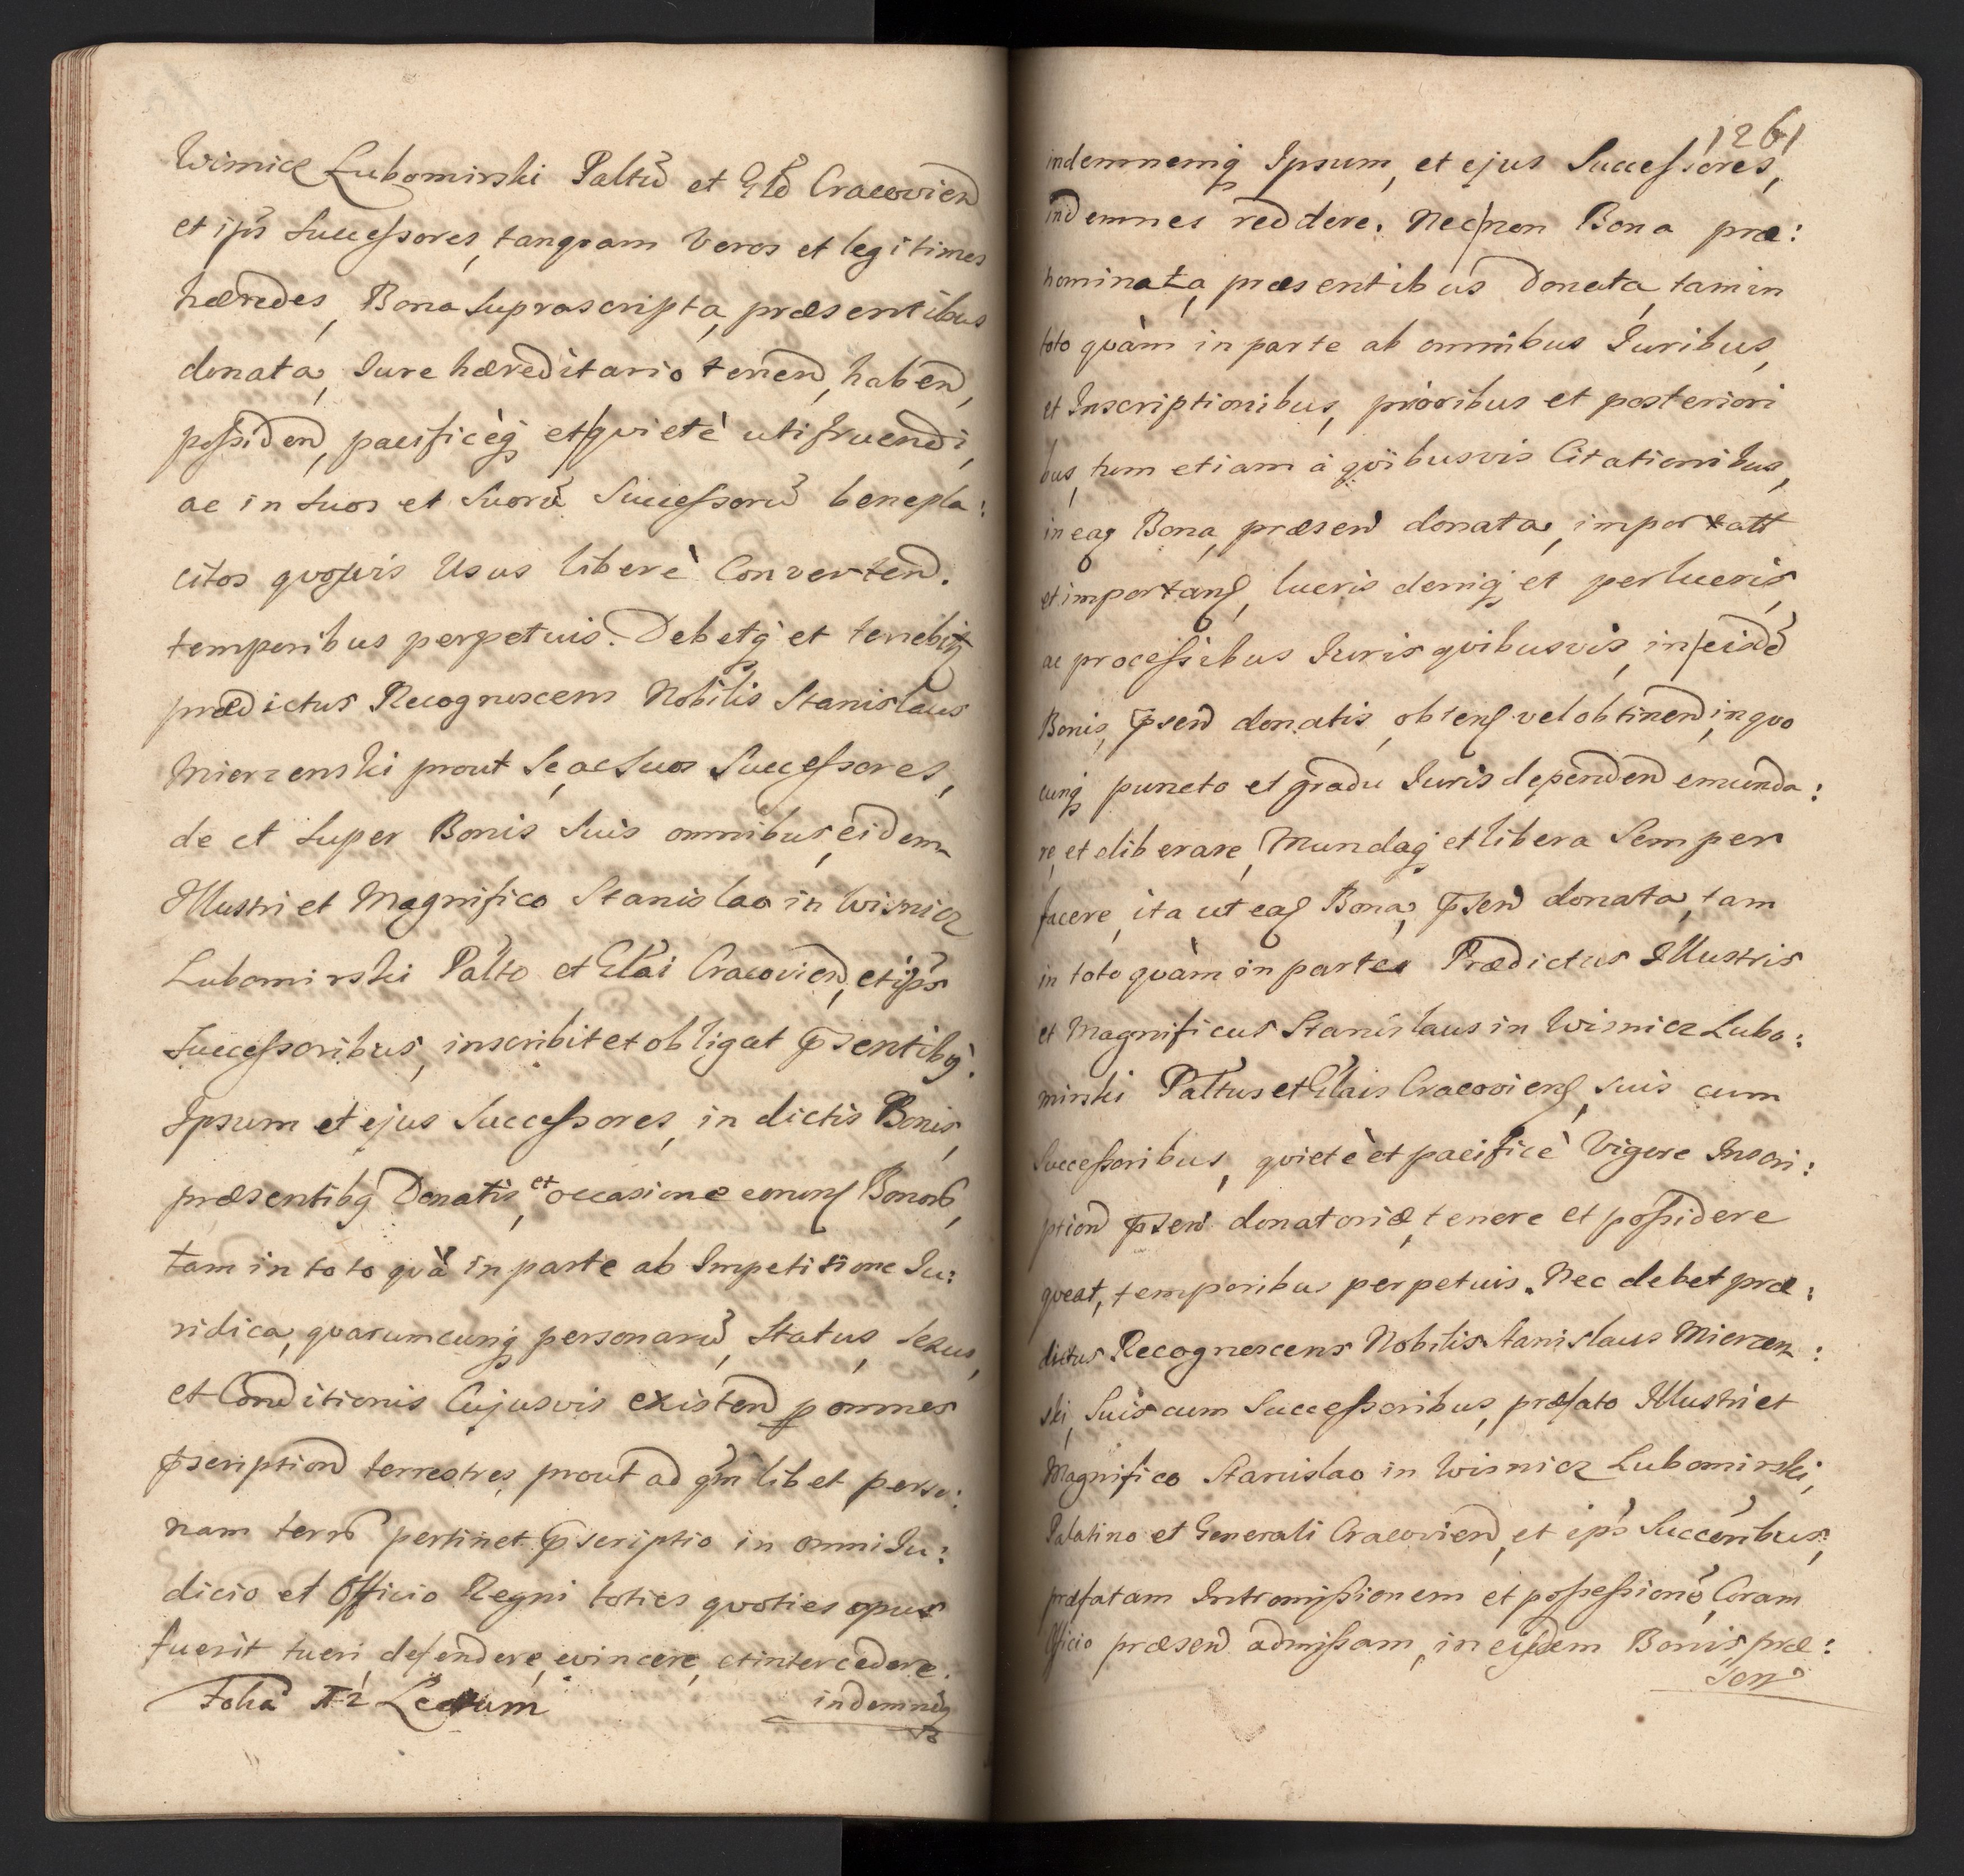 Wiśnicz Lubomirski Paltū et Glē Cracovien
et ips̄ Successores, tanqvam Veros et legitimos
hæredes, Bona Suprascripta, præsentibus
donata, Iure hæreditario tenen, haben,
possiden, pacificèq́ et qvietè utifruendi,
ac in Suos et Suorū Successorū benepla:
citos qvosvis Usus liberè Converten.
temporibus perpetuis. Debetq́ et tenebitq́
prædictus Recognoscens Nobilis Stanislaus
Mierzenski prout Se, ac Suos Successores,
de et Super Bonis Suis omnibus, eidem
Illustri et Magnifico Stanislao in Wisnicz
Lubomirski Palto et Glai Cracovien, et ips̄
Successoribus, inscribit et obligat p̄sentibq́.
Ipsum et ejus Successores, in dictis Bonis,
præsentibq́ Donatis, et occasione eorunq́ Bonorū,
tam in toto qvā in parte ab Impetitione Iu:
ridica, qvarumcunq́ personarū, Status, Sexus,
et Conditionis Cujusvis existen p omnes
p̄scription terrestres, prout ad qm̄libet perso:
nam terrē pertinet p̄scriptio in omni Iu:
dicio et Officio Regni toties qvoties opus
fuerit tueri defendere, evincere, et intercedere.
indemnēq́
1261
indemnemq́ Ipsum, et ejus Successores,
indemnes reddere. Nec non Bona præ:
nominata, præsentibus Donata, tam in
toto qvàm in parte ab omnibus Iuribus,
et Inscriptionibus, prioribus et posteriori
bus, tum etiam à qvibusvis Citationibus,
in eaq́ Bona, præsen donata, importatt
et importanq́, lucris deniq́ et perlucris,
ac processibus Iuris qvibusvis, in eisdē
Bonis, p̄sen donatis, obtenq́ vel obtinen, in qvo
cunq́ puncto et gradu Iuris dependen emunda:
re, et eliberare, Mundaq́ et libera Semper
facere, ita ut eaq́ Bona, p̄sen donata, tam
in toto qvàm in partes Prædictus Illustris
et Magnificus Stanislaus in Wisnicz Lubo:
mirski Paltus et Glais Cracovienq́, suis cum
Successoribus, qvietè et pacificè Vigore Inscri:
ption p̄sen donatoriæ, tenere et possidere
qveat, temporibus perpetuis. Nec debet præ:
dictus Recognoscens Nobilis Stanislaus Mierzen:
ski, Suis cum Successoribus, præfato Illustri et
Magnifico Stanislao in Wisnicz Lubomirski,
Palatino et Generali Cracovien, et ips̄ Succēribus,
præfatam Intromissionem et possessionē, Coram
Officio præsen admissam, in eisdem Bonis præ:
sen